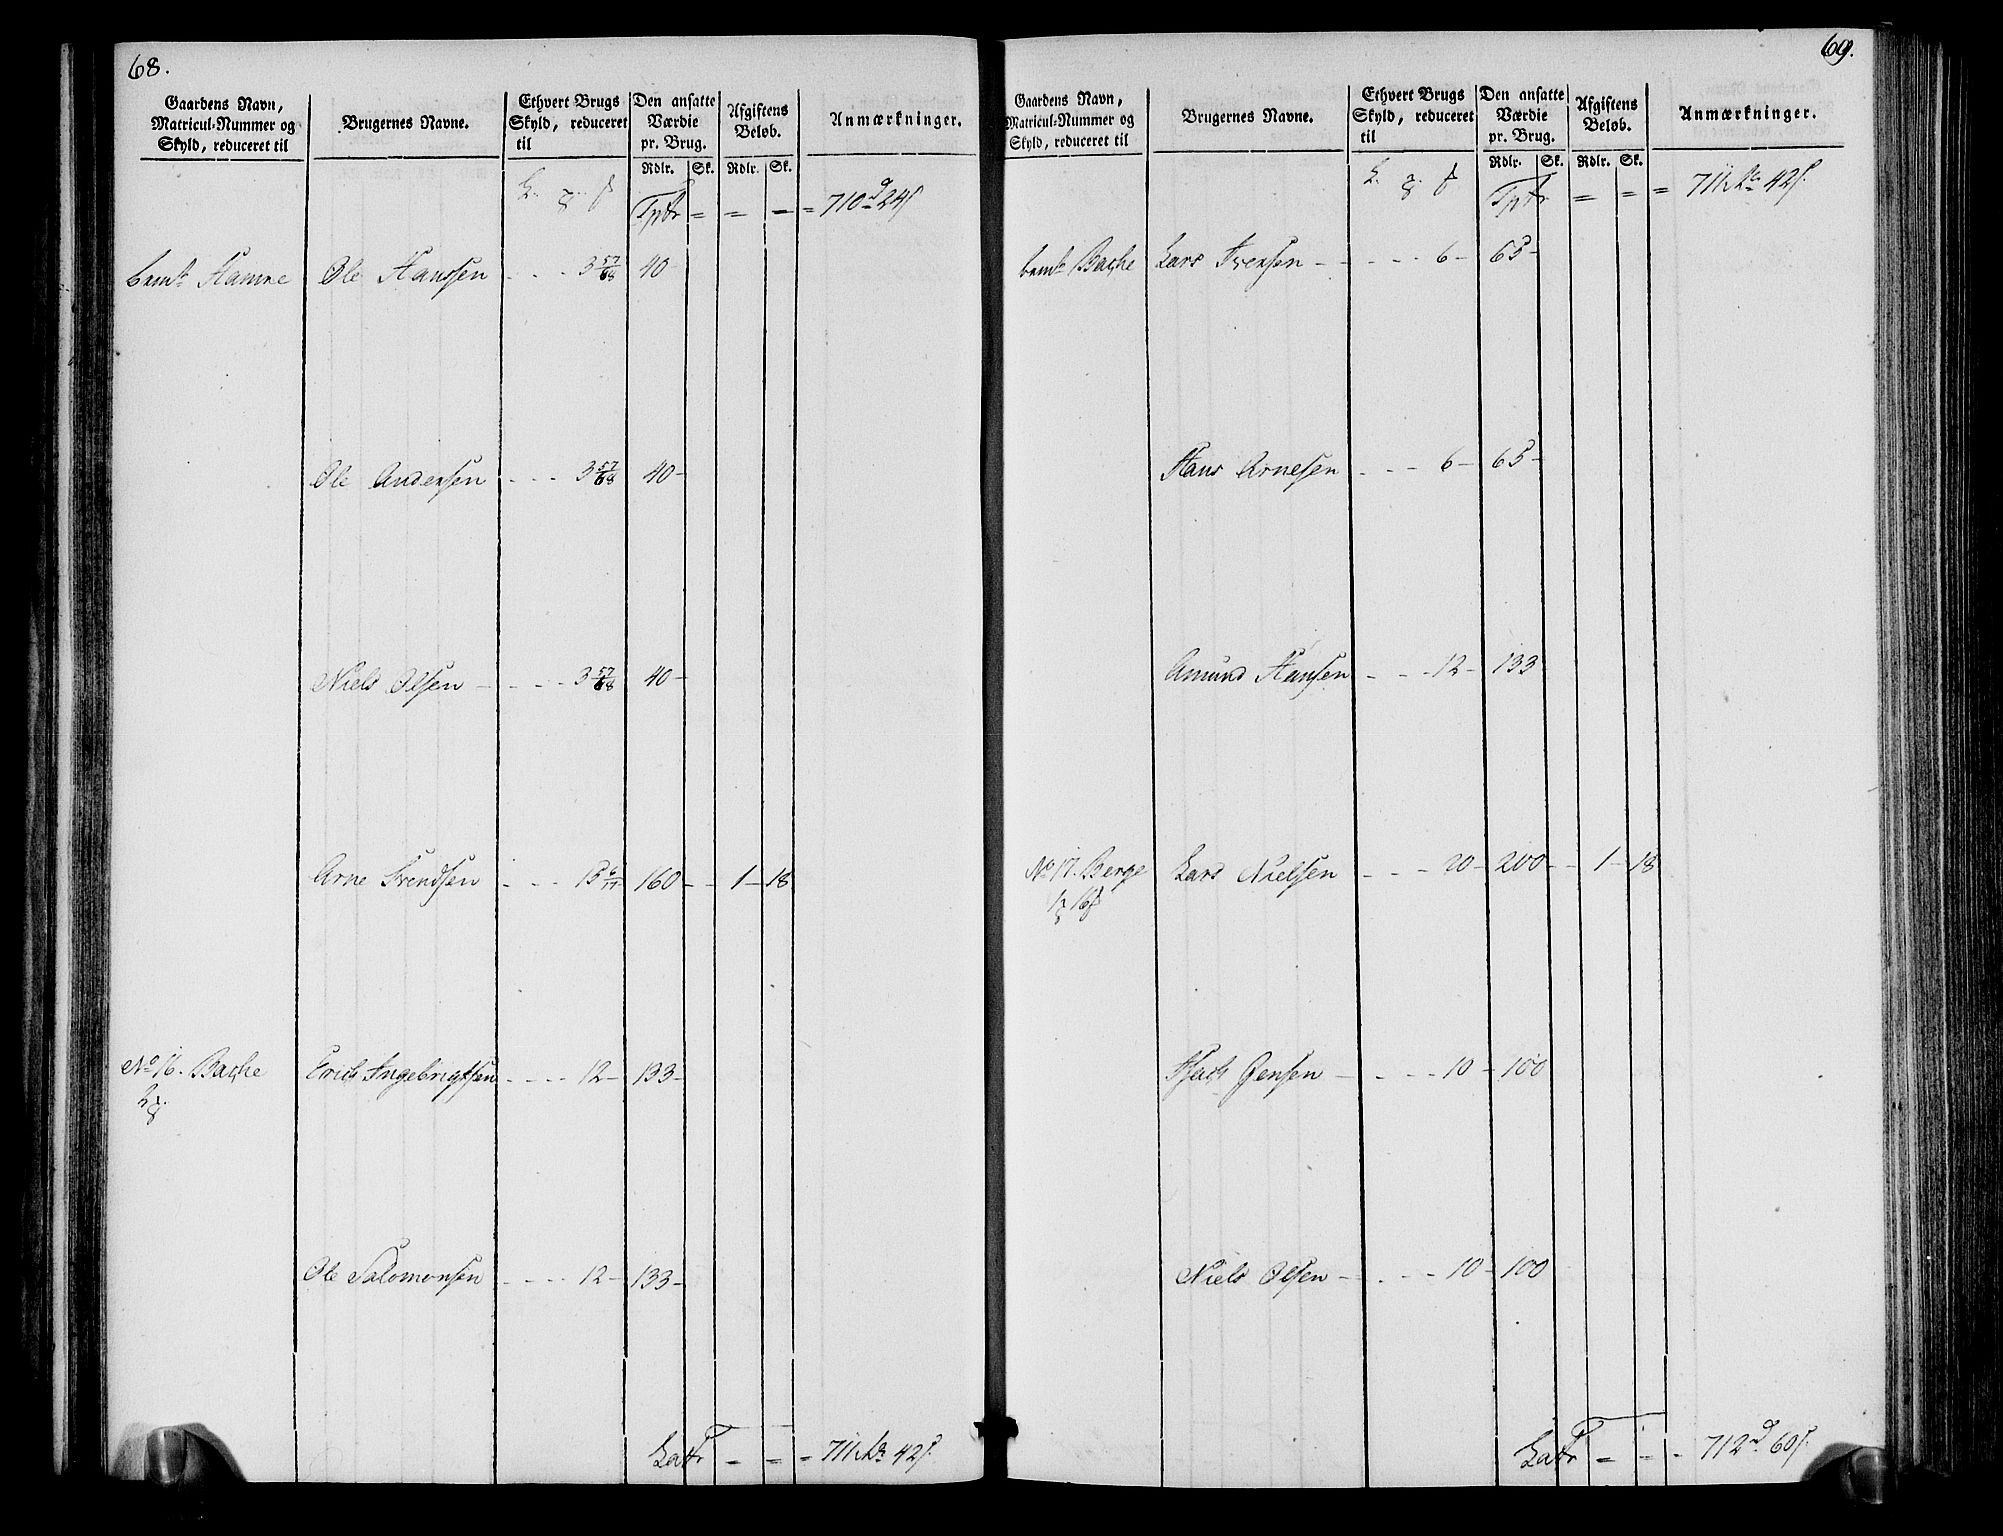 68.
Gaardens Navn, Matricul-Nummer og Skyld, reduceret til
Brugernes Navne.
Ethvert Brugs Skyld, reduceret til
Den ansatte Værdie pr. Brug.
Afgiftens Beløb.
Anmærkninger.
Rdlr. Sk. Rdlr. Sk.
Tptr = = - = 710 24
Hamre Ole Hanssen - - - 3 57/68 40 -
Ole Andersen - - - 3 57/68 40 -
Niels Olsen - - - - 3 57/68 40 -
Arne Svendsen - - - 15 6/17 160 - - 1 - 18
No 16. Bache Erich Ingebrigtsen - - - - 12 - 133 -
Ole Salomonsen - - - - 12 - 133 -
Latr - = = 711 42
69.
Gaardens Navn, Matricul-Nummer og Skyld, reduceret til
Brugernes Navne.
Ethvert Brugs Skyld, reduceret til
Den ansatte Værdie pr. Brug.
Afgiftens Beløb.
Anmærkninger.
Rdlr. Sk. Rdlr. Sk.
Tptr = = = 711 42
Bache Lars Iversen - - - - - 6 - 65 -
Hans Arnesen - - - 6 - 65 -
Amund Hansen - - - 12 - 133
No 17. Berge Lars Nielsen - - - 20 - 200 - - 1 - 18
16
Jensen - - - - 10 - 100
Niels Olsen - - - - 10 - 100
Latr = - - 712 60